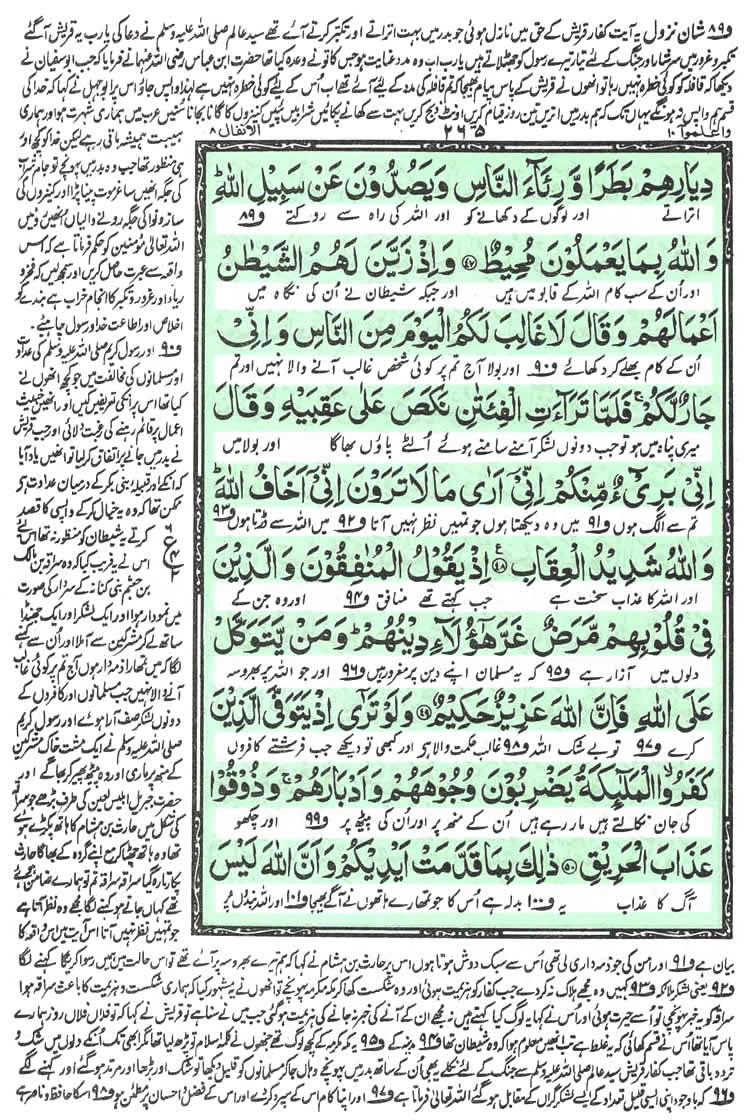 و۸۹ شان نزول یہ آیت کفار قریش کے حق میں نازل ہوئی جو بدر میں بہت اتراتے اور تکبر کرتے آئے تھے سید عالم صلی اللہ علیہ وسلم نے دعا کی یارب یہ قریش آگئے
تکبر و غرور میں سرشار اور جنگ کے لئے تیار تیرے رسول کو جھٹلاتے ہیں یارب اب وہ مدد عنایت ہو جس کا تو نے وعدہ کیا تھا حضرت ابن عباس رضی اللہ عنہما نے فرمایا کہ جب ابوسفیان نے
دیکھا کہ قافلہ کو کوئی خطرہ نہیں رہا تو انھوں نے قریش کے پاس پیام بھیجا کہ تم قافلہ کی مدد کے لئے آئے تھے اب اُس کے لئے کوئی خطرہ نہیں ہے لہذا واپس جاؤ اس پر ابوجہل نے کہا کہ خدا کی
قسم ہم واپس نہ ہونگے یہاں تک کہ ہم بدر میں اتریں تین روز قیام کریں اونٹ ذبح کریں بہت سے کھانے پکائیں شرابیں پئیں کنیزوں کا گانا بجانا سنیں عرب میں ہماری شہرت ہو اور ہماری
واعلموا ۱۰
۲۶۵
الانفال ۸
ہیبت ہمیشہ باقی رہے لیکن خدا کو کچھ
اور ہی منظور تھا جب وہ بدر میں پہونچے تو جام شراب
کی جگہ انھیں ساغر موت پینا پڑا اور کنیزوں کی
ساز و نوا کی جگہ رونے والیاں انھیں روئیں
اللہ تعالیٰ مؤمنین کو حکم فرماتا ہے کہ اس
واقعہ سے عبرت حاصل کریں اور سمجھ لیں کہ فخر و
ریاء اور غرور و تکبر کا انجام خراب ہے بندے کو
اخلاص اور اطاعت خدا و رسول چاہیے۔
و۹۰ اور رسول کریم صلی اللہ علیہ وسلم کی عداوت
اور مسلمانوں کی مخالفت میں جو کچھ انھوں نے
کیا تھا اس پر انکی تعریفیں کیں اور انھیں خبیث
اعمال پر قائم رہنے کی رغبت دلائی اور جب قریش
نے بدر میں جانے پر اتفاق کر لیا تو انھیں یاد آیا
کہ انکے اور قبیلۂ بنی بکر کے درمیان عداوت ہے
ممکن تھا کہ وہ یہ خیال کر کے واپسی کا قصد
کرتے یہ شیطان کو منظور نہ تھا اس لئے
اس نے یہ فریب کیا کہ وہ سراقہ بن مالک
بن جعشم بنی کنانہ کے سردار کی صورت
میں نمودار ہوا اور ایک لشکر اور ایک جھنڈا
ساتھ لے کر مشرکین سے آملا اور اُن سے کہنے
لگا کہ میں تمھارا ذمہ دار ہوں آج تم پر کوئی غالب
آنے والا نہیں جب مسلمانوں اور کافروں کے
دونوں لشکر صف آرا ہوئے اور رسول کریم
صلی اللہ علیہ وسلم نے ایک مشت خاک مشرکین
کے منھ پر ماری اور وہ پیٹھ پھیر کر بھاگے اور
حضرت جبریل ابلیس لعین کی طرف بڑھے جو سراقہ
کی شکل میں حارث بن ہشام کا ہاتھ پکڑے ہوئے
تھا وہ ہاتھ چھڑا کر مع اپنے گروہ کے بھاگا حارث
پکارتا رہ گیا سراقہ سراقہ تم تو ہمارے ضامن ہوئے
تھے کہاں جاتے ہو کہنے لگا مجھے وہ نظر آتا ہے
جو تمہیں نظر نہیں آتا اس آیت میں اس واقعہ کا
دِيَارِهِمْ بَطَرًا وَّرِئَآءَ النَّاسِ وَيَصُدُّوْنَ عَنْ سَبِيْلِ اللّٰهِ
اتراتے اور لوگوں کے دکھانے کو اور اللہ کی راہ سے روکتے و۸۹
وَاللّٰهُ بِمَا يَعْمَلُوْنَ مُحِيْطٌ ۴۷ وَاِذْ زَيَّنَ لَهُمُ الشَّيْطٰنُ
اور اُن کے سب کام اللہ کے قابو میں ہیں اور جبکہ شیطان نے اُن کی نگاہ میں
اَعْمَالَهُمْ وَقَالَ لَا غَالِبَ لَكُمُ الْيَوْمَ مِنَ النَّاسِ وَاِنِّيْ
اُن کے کام بھلے کر دکھائے و۹۰ اور بولا آج تم پر کوئی شخص غالب آنے والا نہیں اور تم
جَارٌ لَّكُمْ ۚ فَلَمَّا تَرَآءَتِ الْفِئَتٰنِ نَكَصَ عَلٰى عَقِبَيْهِ وَقَالَ
میری پناہ میں ہو تو جب دونوں لشکر آمنے سامنے ہوئے اُلٹے پاؤں بھاگا اور بولا میں
اِنِّيْ بَرِيْٓءٌ مِّنْكُمْ اِنِّيْٓ اَرٰى مَا لَا تَرَوْنَ اِنِّيْٓ اَخَافُ اللّٰهَ ؕ
تم سے الگ ہوں و۹۱ میں وہ دیکھتا ہوں جو تمہیں نظر نہیں آتا و۹۲ میں اللہ سے ڈرتا ہوں و۹۳
وَاللّٰهُ شَدِيْدُ الْعِقَابِ ۴۸ اِذْ يَقُوْلُ الْمُنٰفِقُوْنَ وَالَّذِيْنَ
اور اللہ کا عذاب سخت ہے جب کہتے تھے منافق و۹۴ اور وہ جن کے
فِيْ قُلُوْبِهِمْ مَّرَضٌ غَرَّ هٰٓؤُلَآءِ دِيْنُهُمْ ؕ وَمَنْ يَّتَوَكَّلْ
دلوں میں آزار ہے و۹۵ کہ یہ مسلمان اپنے دین پر مغرور ہیں و۹۶ اور جو اللہ پر بھروسہ
عَلَى اللّٰهِ فَاِنَّ اللّٰهَ عَزِيْزٌ حَكِيْمٌ ۴۹ وَلَوْ تَرٰٓى اِذْ يَتَوَفَّى الَّذِيْنَ
کرے و۹۷ تو بے شک اللہ و۹۸ غالب حکمت والا ہے اور کبھی تو دیکھے جب فرشتے کافروں
كَفَرُوا ۙ الْمَلٰٓئِكَةُ يَضْرِبُوْنَ وُجُوْهَهُمْ وَاَدْبَارَهُمْ ۚ وَذُوْقُوْا
کی جان نکالتے ہیں مار رہے ہیں اُن کے منھ پر اور اُن کی پیٹھ پر و۹۹ اور چکھو
عَذَابَ الْحَرِيْقِ ۵۰ ذٰلِكَ بِمَا قَدَّمَتْ اَيْدِيْكُمْ وَاَنَّ اللّٰهَ لَيْسَ
آگ کا عذاب یہ و۱۰۰ بدلہ ہے اُس کا جو تمھارے ہاتھوں نے آگے بھیجا و۱۰۱ اور اللہ بندوں پر
بیان ہے و۹۱ اور امن کی جو ذمہ داری لی تھی اُس سے سبک دوش ہوتا ہوں اس پر حارث بن ہشام نے کہا کہ ہم تیرے بھروسہ پر آئے تھے تو اس حالت میں ہمیں رسوا کریگا کہنے لگا
و۹۲ یعنی لشکر ملائکہ و۹۳ کہیں وہ مجھے ہلاک نہ کردے جب کفار کو ہزیمت ہوئی اور وہ شکست کھا کر مکہ مکرمہ پہونچے تو انھوں نے یہ مشہور کیا کہ ہماری شکست و ہزیمت کا باعث سراقہ ہوا
سراقہ کو یہ خبر پہونچی تو اُسے حیرت ہوئی اور اُس نے کہا یہ لوگ کیا کہتے ہیں نہ مجھے ان کے آنے کی خبر نہ جانے کی ہزیمت ہوگئی جب میں نے سنا ہے تو قریش نے کہا کہ تو فلاں فلاں روز ہمارے
پاس آیا تھا اُس نے قسم کھائی کہ یہ غلط ہے تب انھیں معلوم ہوا کہ وہ شیطان تھا و۹۴ مدینہ کے و۹۵ یہ مکہ مکرمہ کے کچھ لوگ تھے جنھوں نے کلمۂ اسلام تو پڑھ لیا تھا مگر ابھی تک اُنکے دلوں میں شک و
تردد باقی تھا جب کفار قریش سید عالم صلی اللہ علیہ وسلم سے جنگ کے لئے نکلے یہ بھی اُن کے ساتھ بدر میں پہونچے وہاں جا کر مسلمانوں کو قلیل دیکھا تو شک اور بڑھا اور مرتد ہوگئے اور کہنے لگے
و۹۶ کہ باوجود اپنی ایسی قلیل تعداد کے ایسے لشکر گراں کے مقابل ہوگئے اللہ تعالیٰ فرماتا ہے و۹۷ اور اپنا کام اس کے سپرد کردے اور اس کے فضل و احسان پر مطمئن ہو و۹۸ اسکا حافظ و ناصر ہے